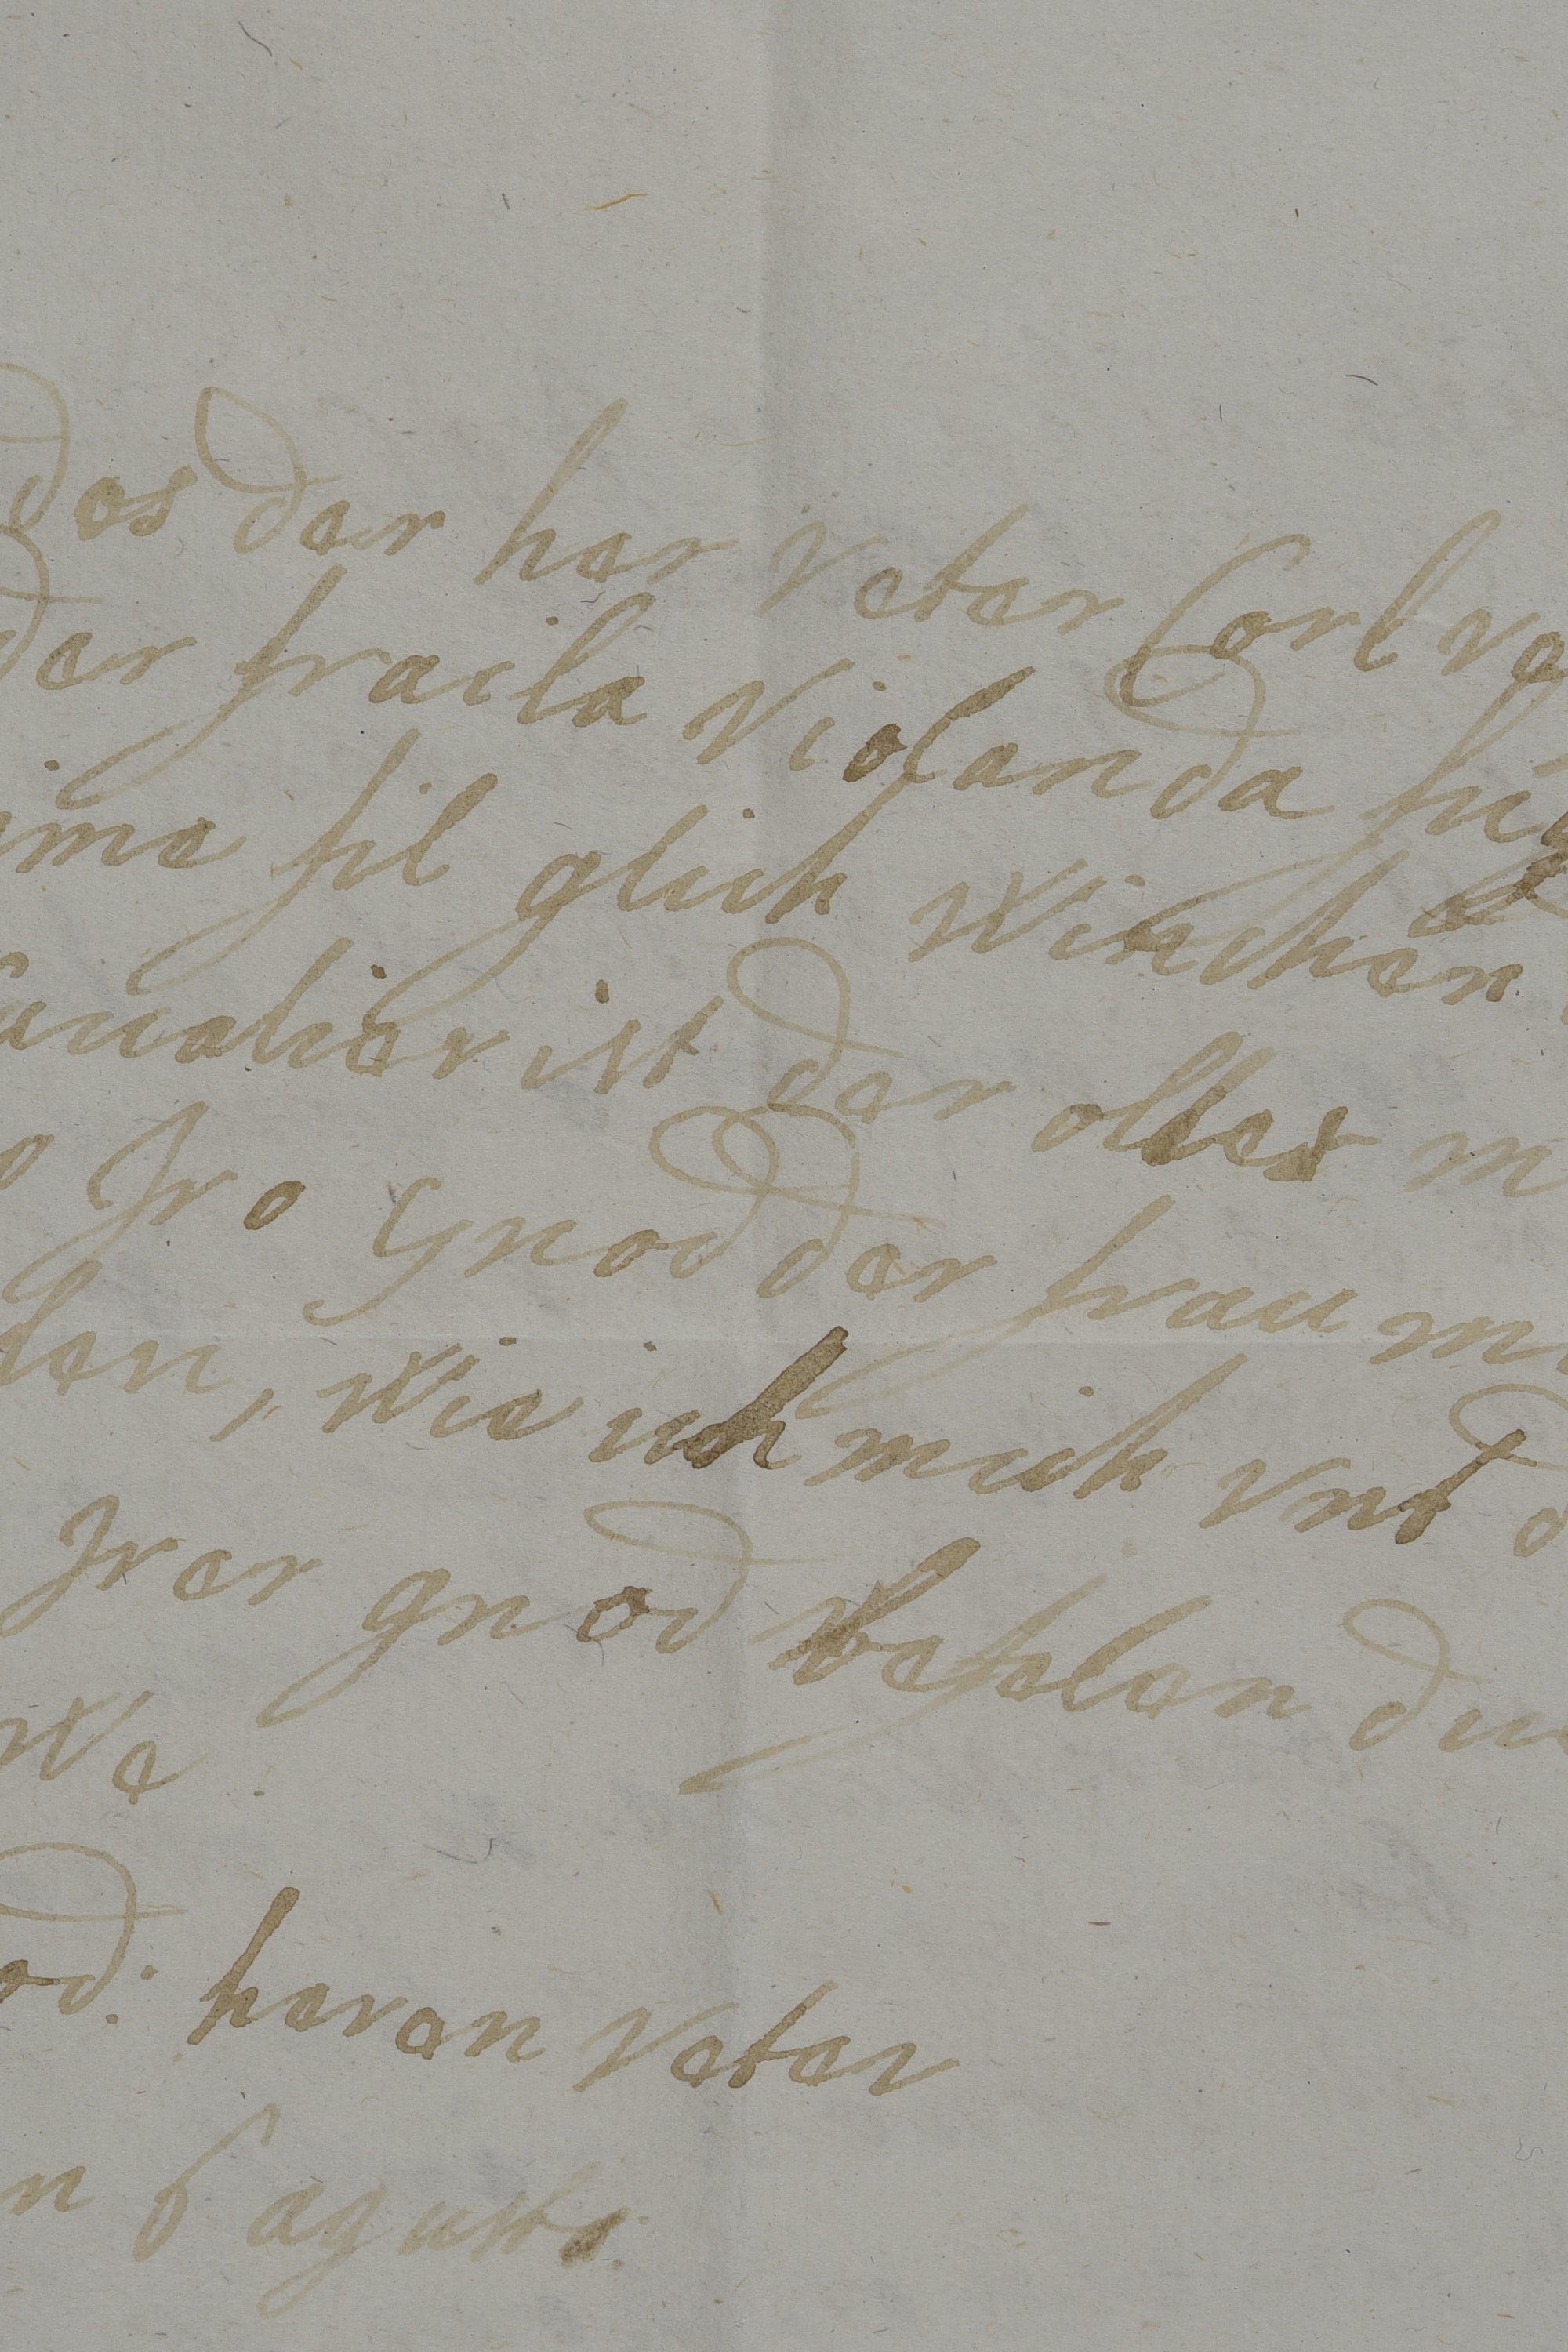 dos der her veter Corl vo
der fraila Violanda fi
ime fil glich Winchen
Caualier ist der olles m
Iro Gnod der frau m
len, Wie ich mich vnt d
Irer gnod befelen du
We
od: heren Veter
n 6 agusto